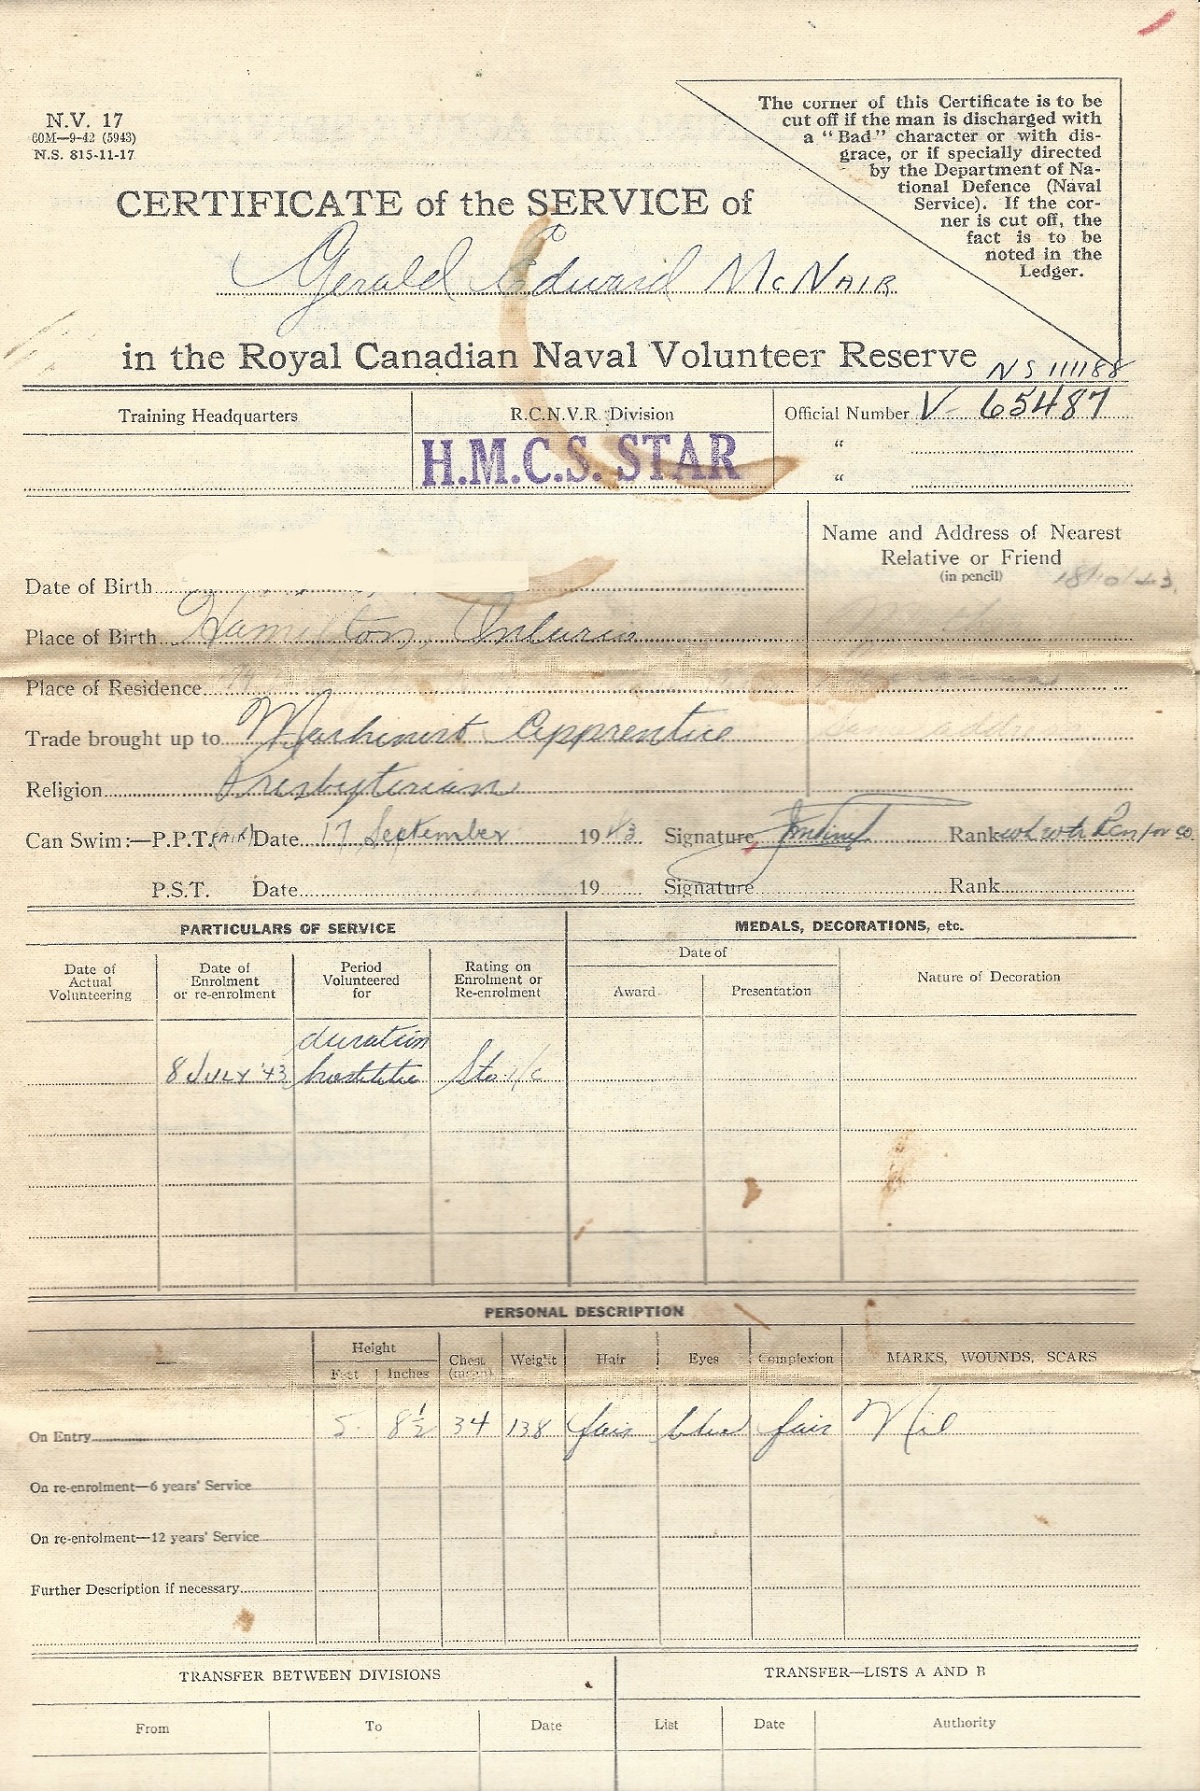 N.V. 17
60M—9-42 (5943)
N.S. 815-11-17
The corner of this Certificate is to be
cut off if the man is discharged with
a "Bad" character or with dis-
grace, or if specially directed
by the Department of Na-
tional Defence (Naval
Service). If the cor-
ner is cut off, the
fact is to be
noted in the
Ledger.
CERTIFICATE of the SERVICE of
Gerald Edward McNAIR
in the Royal Canadian Naval Volunteer Reserve
NS 111188
Training Headquarters R.C.N.V.R. Division Official Number V- 65487
H.M.C.S. STAR
"
"
Name and Address of Nearest
Relative or Friend
(in pencil)
Date of Birth
Place of Birth Hamilton, Ontario
Place of Residence
Trade brought up to Machinist Apprentice
Religion Presbyterian
Can Swim:—P.P.T. Date 17 September 1943 Signature Rank
P.S.T. Date 19 Signature Rank
PARTICULARS OF SERVICE MEDALS, DECORATIONS, etc.
Date of Actual Volunteering Date of Enrolment or re-enrolment Period Volunteered for Rating on Enrolment or Re-enrolment Date of Award Presentation Nature of Decoration
8 JULY '43 duration hostilitie Sto. 1/c
PERSONAL DESCRIPTION
— Height Feet Inches Chest (mean) Weight Hair Eyes Complexion MARKS, WOUNDS, SCARS
On Entry 5 8½ 34 138 fair blue fair Nil
On re-enrolment—6 years' Service
On re-enrolment—12 years' Service
Further Description if necessary
TRANSFER BETWEEN DIVISIONS TRANSFER—LISTS A AND B
From To Date List Date Authority